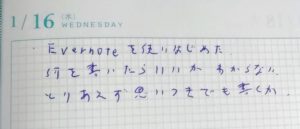 1/16 (水)
WEDNESDAY
・Evernoteを使いはじめた
何を書いたらいいかわからない
とりあえず思いつきでも書くか